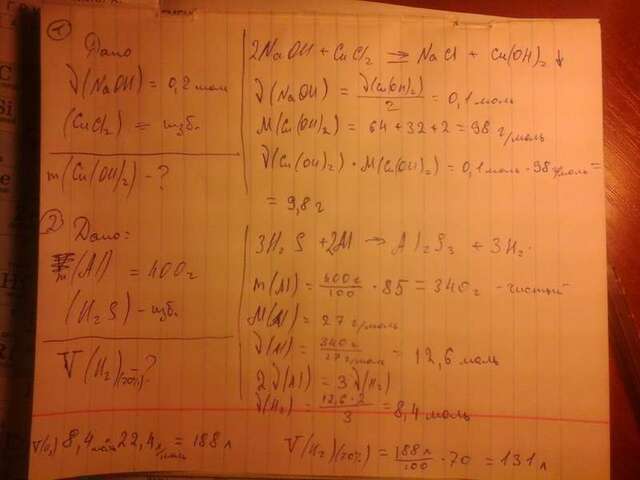 1
Дано
ν(NaOH) = 0,2 моль
(CuCl₂) = изб.
m(Cu(OH)₂) - ?
2NaOH + CuCl₂ ⇒ NaCl + Cu(OH)₂↓
ν(NaOH) = ν(Cu(OH)₂)/2 = 0,1 моль
M(Cu(OH)₂) = 64 + 32 + 2 = 98 г/моль
ν(Cu(OH)₂) · M(Cu(OH)₂) = 0,1 моль · 98 г/моль =
= 9,8 г
2
Дано:
m(Al) = 400г
(H₂S) - изб.
V(H₂)(70%)?
3H₂S + 2Al → Al₂S₃ + 3H₂.
m(Al) = 400г/100 · 85 = 340г - чистый
M(Al) = 27 г/моль
ν(Al) = 340г/27г/моль = 12,6 моль
2ν(Al) = 3ν(H₂)
ν(H₂) = 12,6·2/3 = 8,4 моль
8,4 моль 22,4 л/моль = 188 л
V(H₂)(70%) = 188 л/100 · 70 = 131 л